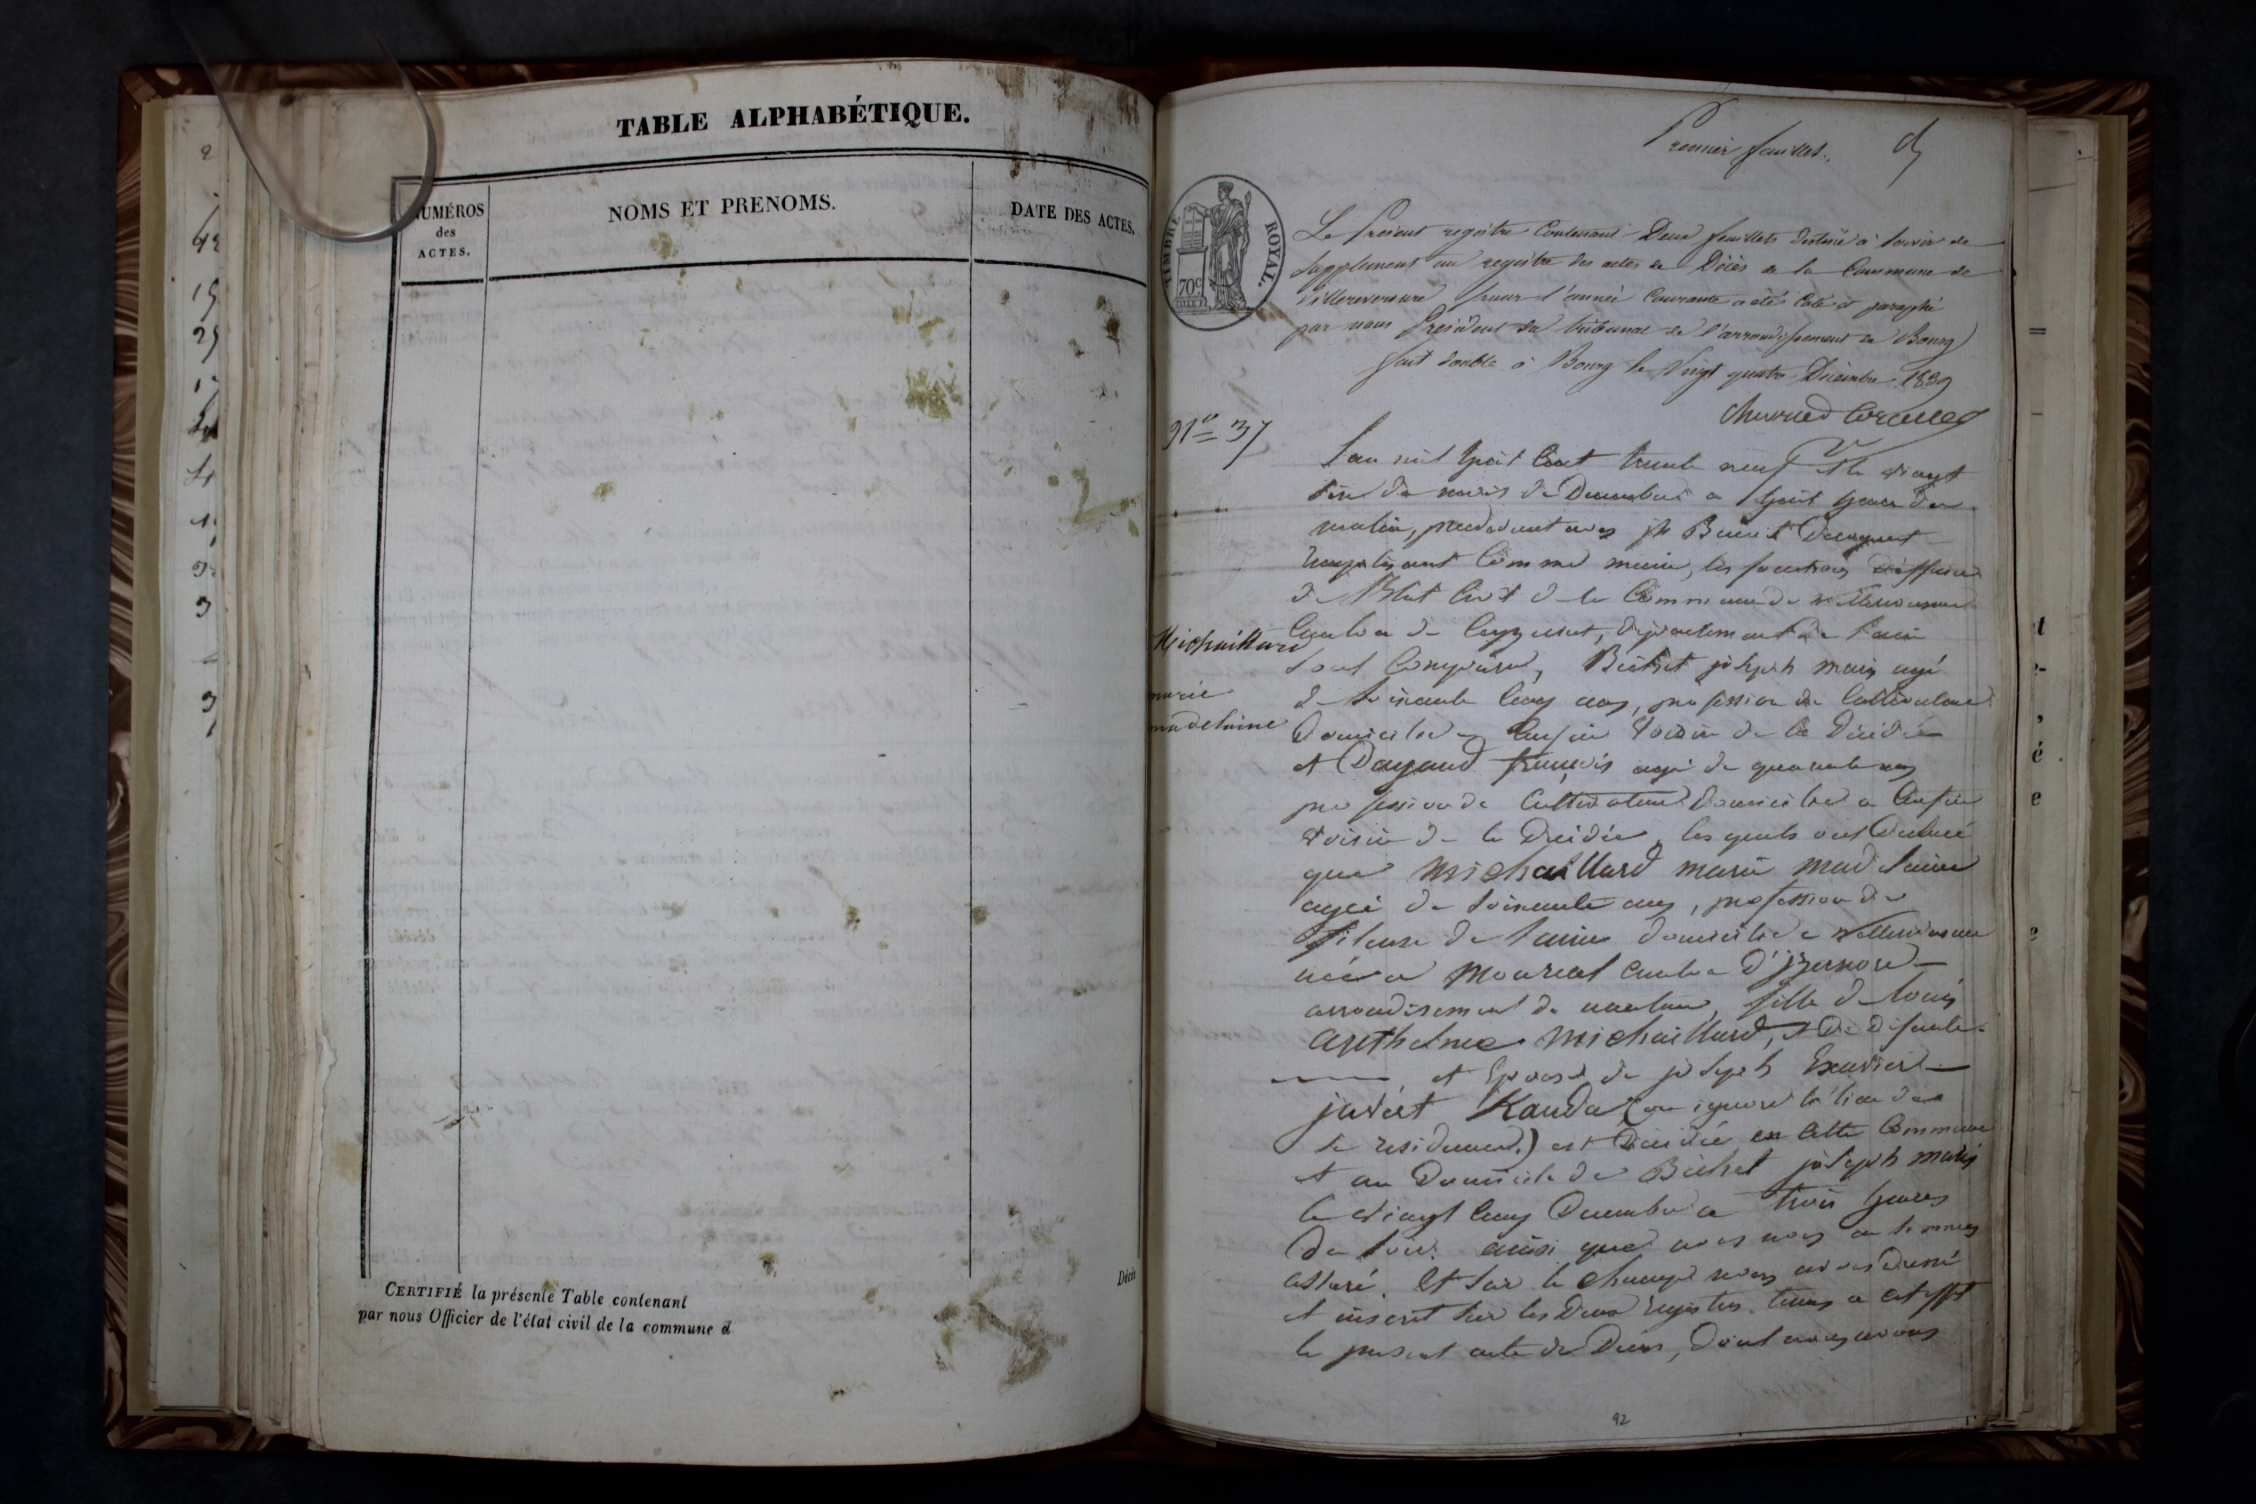 TABLE ALPHABÉTIQUE.
NUMÉROS
des
ACTES.
NOMS ET PRENOMS.
DATE DES ACTES.
CERTIFIÉ la présente Table contenant
par nous Officier de l'état civil de la commune d
Décès
Premier feuillet.
TIMBRE ROYAL.
70c
Le présent registre contenant Deux feuillets destiné à servir de
supplément au registre des actes de Décès de la Commune de
Villereversure pour l'année Courante a été Coté et paraphé
par nous Président du tribunal de l'arrondissement de Bourg
fait double à Bourg le Vingt quatre Décembre 1839
No 37
L'an mil huit Cent trente neuf et le vingt
six du mois de Decembre a huit heures du
matin, pardevant nous Benoit
remplissant Comme maire, les fonctions d'officier
de l'Etat Civil de la Commune de villereversure
Canton de Ceyzeriat, département de l'ain
Michaillard
marie
madelaine
sont Comparus, Bichet joseph marie agé
de soixante Cinq ans, profession de Cultivateur
Domicilié a voisin de la Décédée
et Dagaud françois agé de quarante ans
profession de Cultivateur Domicilié a
voisin de la Décédée, les quels ont Déclaré
que Michaillard marie madelaine
agée de soixante ans, profession de
fileuse de laine domiciliée a villereversure
née a Mornay Canton d'izernore
arrondissement de nantua, fille de louis
anthelme Michaillard, et De défunte
et Epouse de joseph Exavier
juvert Kanda (on ignore le lieu de
sa residence.) est Décédée en Cette Commune
et au Domicile de Bichet joseph marie
le vingt Cinq Decembre a trois heures
du soir. ainsi que nous nous en sommes
assuré. Et sur le champ nous avons dressé
et inscrit sur les Deux registres tenus a cet effet
le present acte de Décès, Dont nous avons
92